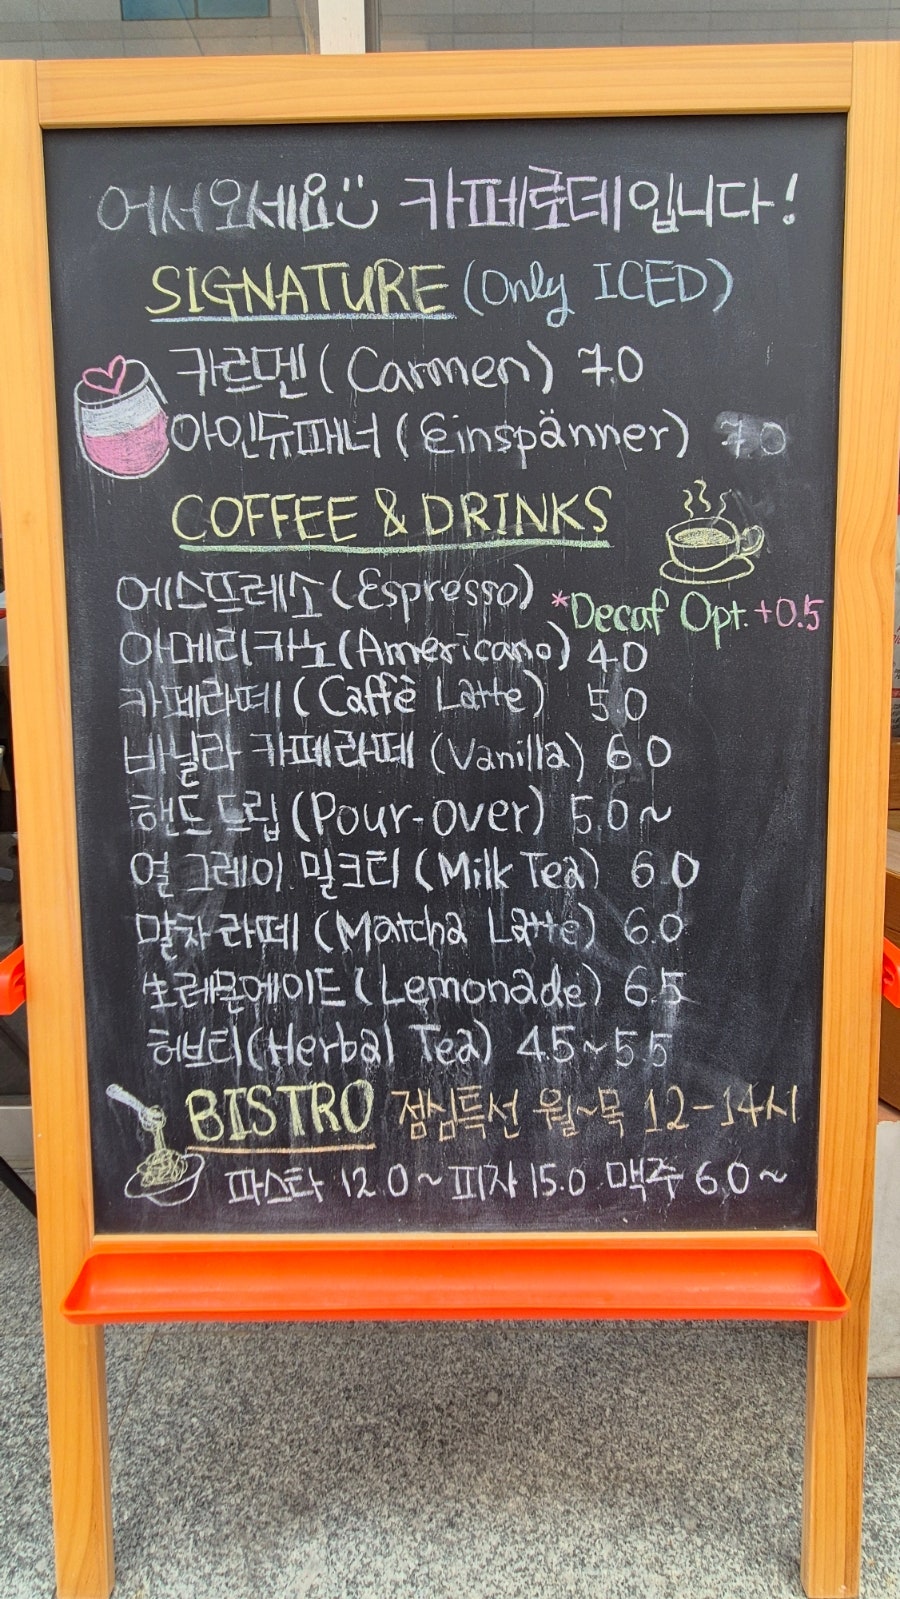 어서오세요 카페로데입니다!
SIGNATURE (Only ICED)
카르멘 (Carmen) 7.0
아인슈패너 (Einspänner) 7.0
COFFEE & DRINKS
에스프레소 (Espresso)
*Decaf Opt. +0.5
아메리카노 (Americano) 4.0
카페라떼 (Caffè Latte) 5.0
바닐라 카페라떼 (Vanilla) 6.0
핸드드립 (Pour-over) 5.0~
얼그레이 밀크티 (Milk Tea) 6.0
말차라떼 (Matcha Latte) 6.0
생레몬에이드 (Lemonade) 6.5
허브티 (Herbal Tea) 4.5~5.5
BISTRO 점심특선 월~목 12-14시
파스타 12.0~ 피자 15.0 맥주 6.0~